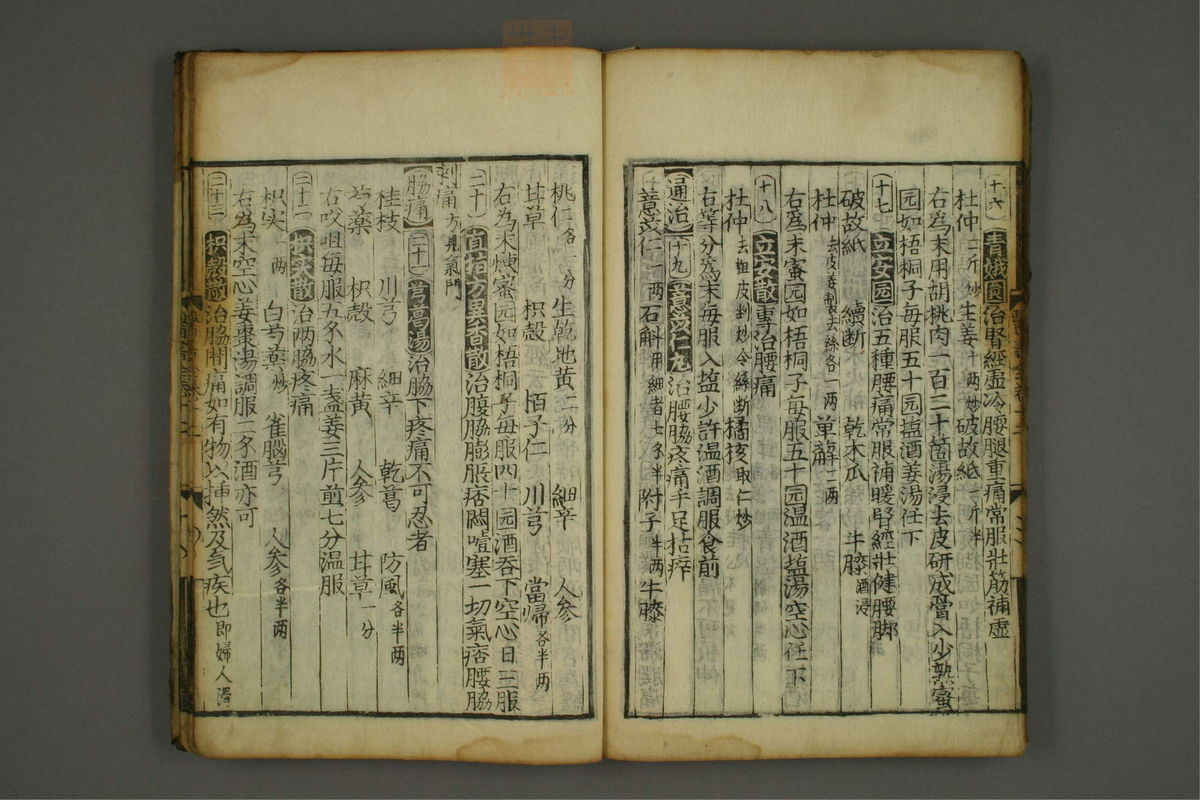 十六 青娥圓 治腎經虛冷腰腿重痛常服壯筋補虛
杜仲二斤炒 生姜十两炒 破故紙一斤半
右爲末用胡桃肉一百二十箇湯浸去皮研成膏入少熟蜜
园如梧桐子每服五十园塩酒姜湯任下
十七 立安园 治五種腰痛常服補暖腎經壯健腰脚
破故紙 續斷 乾木瓜 牛膝酒浸
杜仲去皮姜製去絲各一两 萆薢二两
右爲末蜜园如梧桐子每服五十园温酒塩湯空心任下
十八 立安散 專治腰痛
杜仲去粗皮剉炒令絲斷 橘核取仁炒
右等分爲末每服入塩少許温酒調服食前
通治 十九 薏苡仁丸 治腰脇疼痛手足枯瘁
薏苡仁一两 石斛用細者七夛半 附子半两 牛膝
桃仁各一分 生乾地黄二分 細辛 人參
甘草 枳殼 栢子仁 川芎 當歸各半两
右為末煉蜜园如梧桐子每服四十园酒吞下空心日三服
二十 直指方異香散 治腹脇膨脹痞悶噎塞一切氣痞腰脇
刺痛方見氣門
脇痛 二十一 芎葛湯 治脇下疼痛不可忍者
桂枝 川芎 細辛 乾葛 防風各半两
芍藥 枳殼 麻黄 人參 甘草一分
右㕮咀每服五夛水一盞姜三片煎七分温服
二十二 枳实散 治两脇疼痛
枳实一两 白芍藥炒 雀腦芎 人參各半两
右為末空心姜棗湯調服二夛酒亦可
二十三 枳殼散 治脇間痛如有物以揷然及氣疾也即婦人